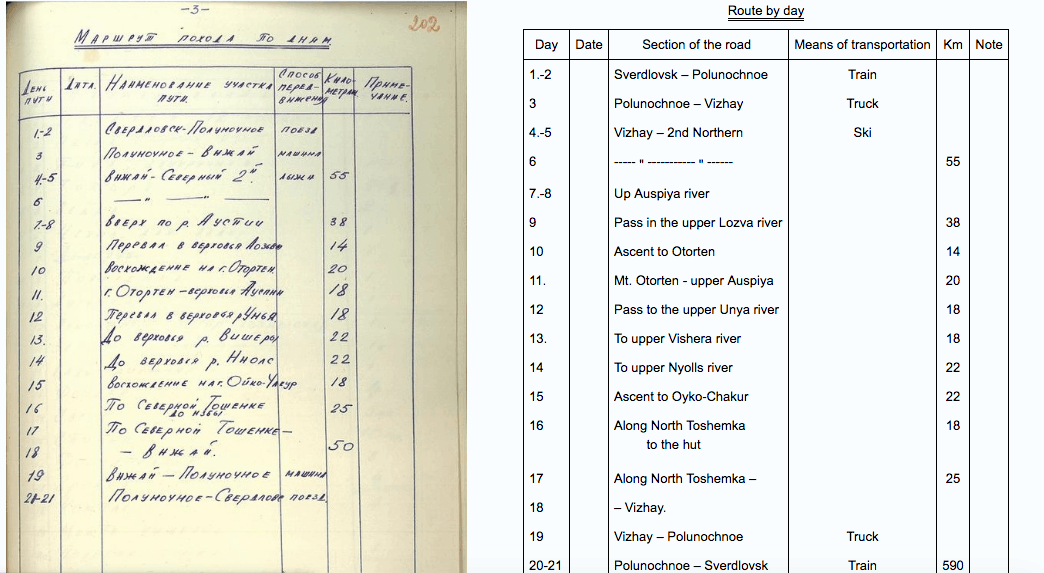 -3-
202
Маршрут похода по дням
День пути Дата. Наименование участка пути. Способ передвижения Километраж Примечание.
1.-2 Свердловск-Полуночное поезд
3 Полуночное - Вижай машина
4.-5 Вижай-Северный 2й. лыжи 55
6 — " — " —
7.-8 Вверх по р. Ауспии 38
9 Перевал в верховья Лозьвы 14
10 Восхождение на г. Отортен 20
11. г. Отортен-верховья Ауспии 18
12 Перевал в верховья р Унья. 18
13. До верховья р. Вишеры 22
14 До верховья р. Ниолс 22
15 Восхождение на г. Ойко-Чакур 18
16 По Северной Тошемке 25
до избы
17 По Северной Тошемке —
18 — Вижай. 50
19 Вижай — Полуночное машина
20-21 Полуночное-Свердловск поезд.
Route by day
Day Date Section of the road Means of transportation Km Note
1.-2 Sverdlovsk – Polunochnoe Train
3 Polunochnoe – Vizhay Truck
4.-5 Vizhay – 2nd Northern Ski
6 ----- " ----------- " ------ 55
7.-8 Up Auspiya river
9 Pass in the upper Lozva river 38
10 Ascent to Otorten 14
11. Mt. Otorten - upper Auspiya 20
12 Pass to the upper Unya river 18
13. To upper Vishera river 18
14 To upper Nyolls river 22
15 Ascent to Oyko-Chakur 22
16 Along North Toshemka 18
to the hut
17 Along North Toshemka – 25
18 – Vizhay.
19 Vizhay – Polunochnoe Truck
20-21 Polunochnoe – Sverdlovsk Train 590